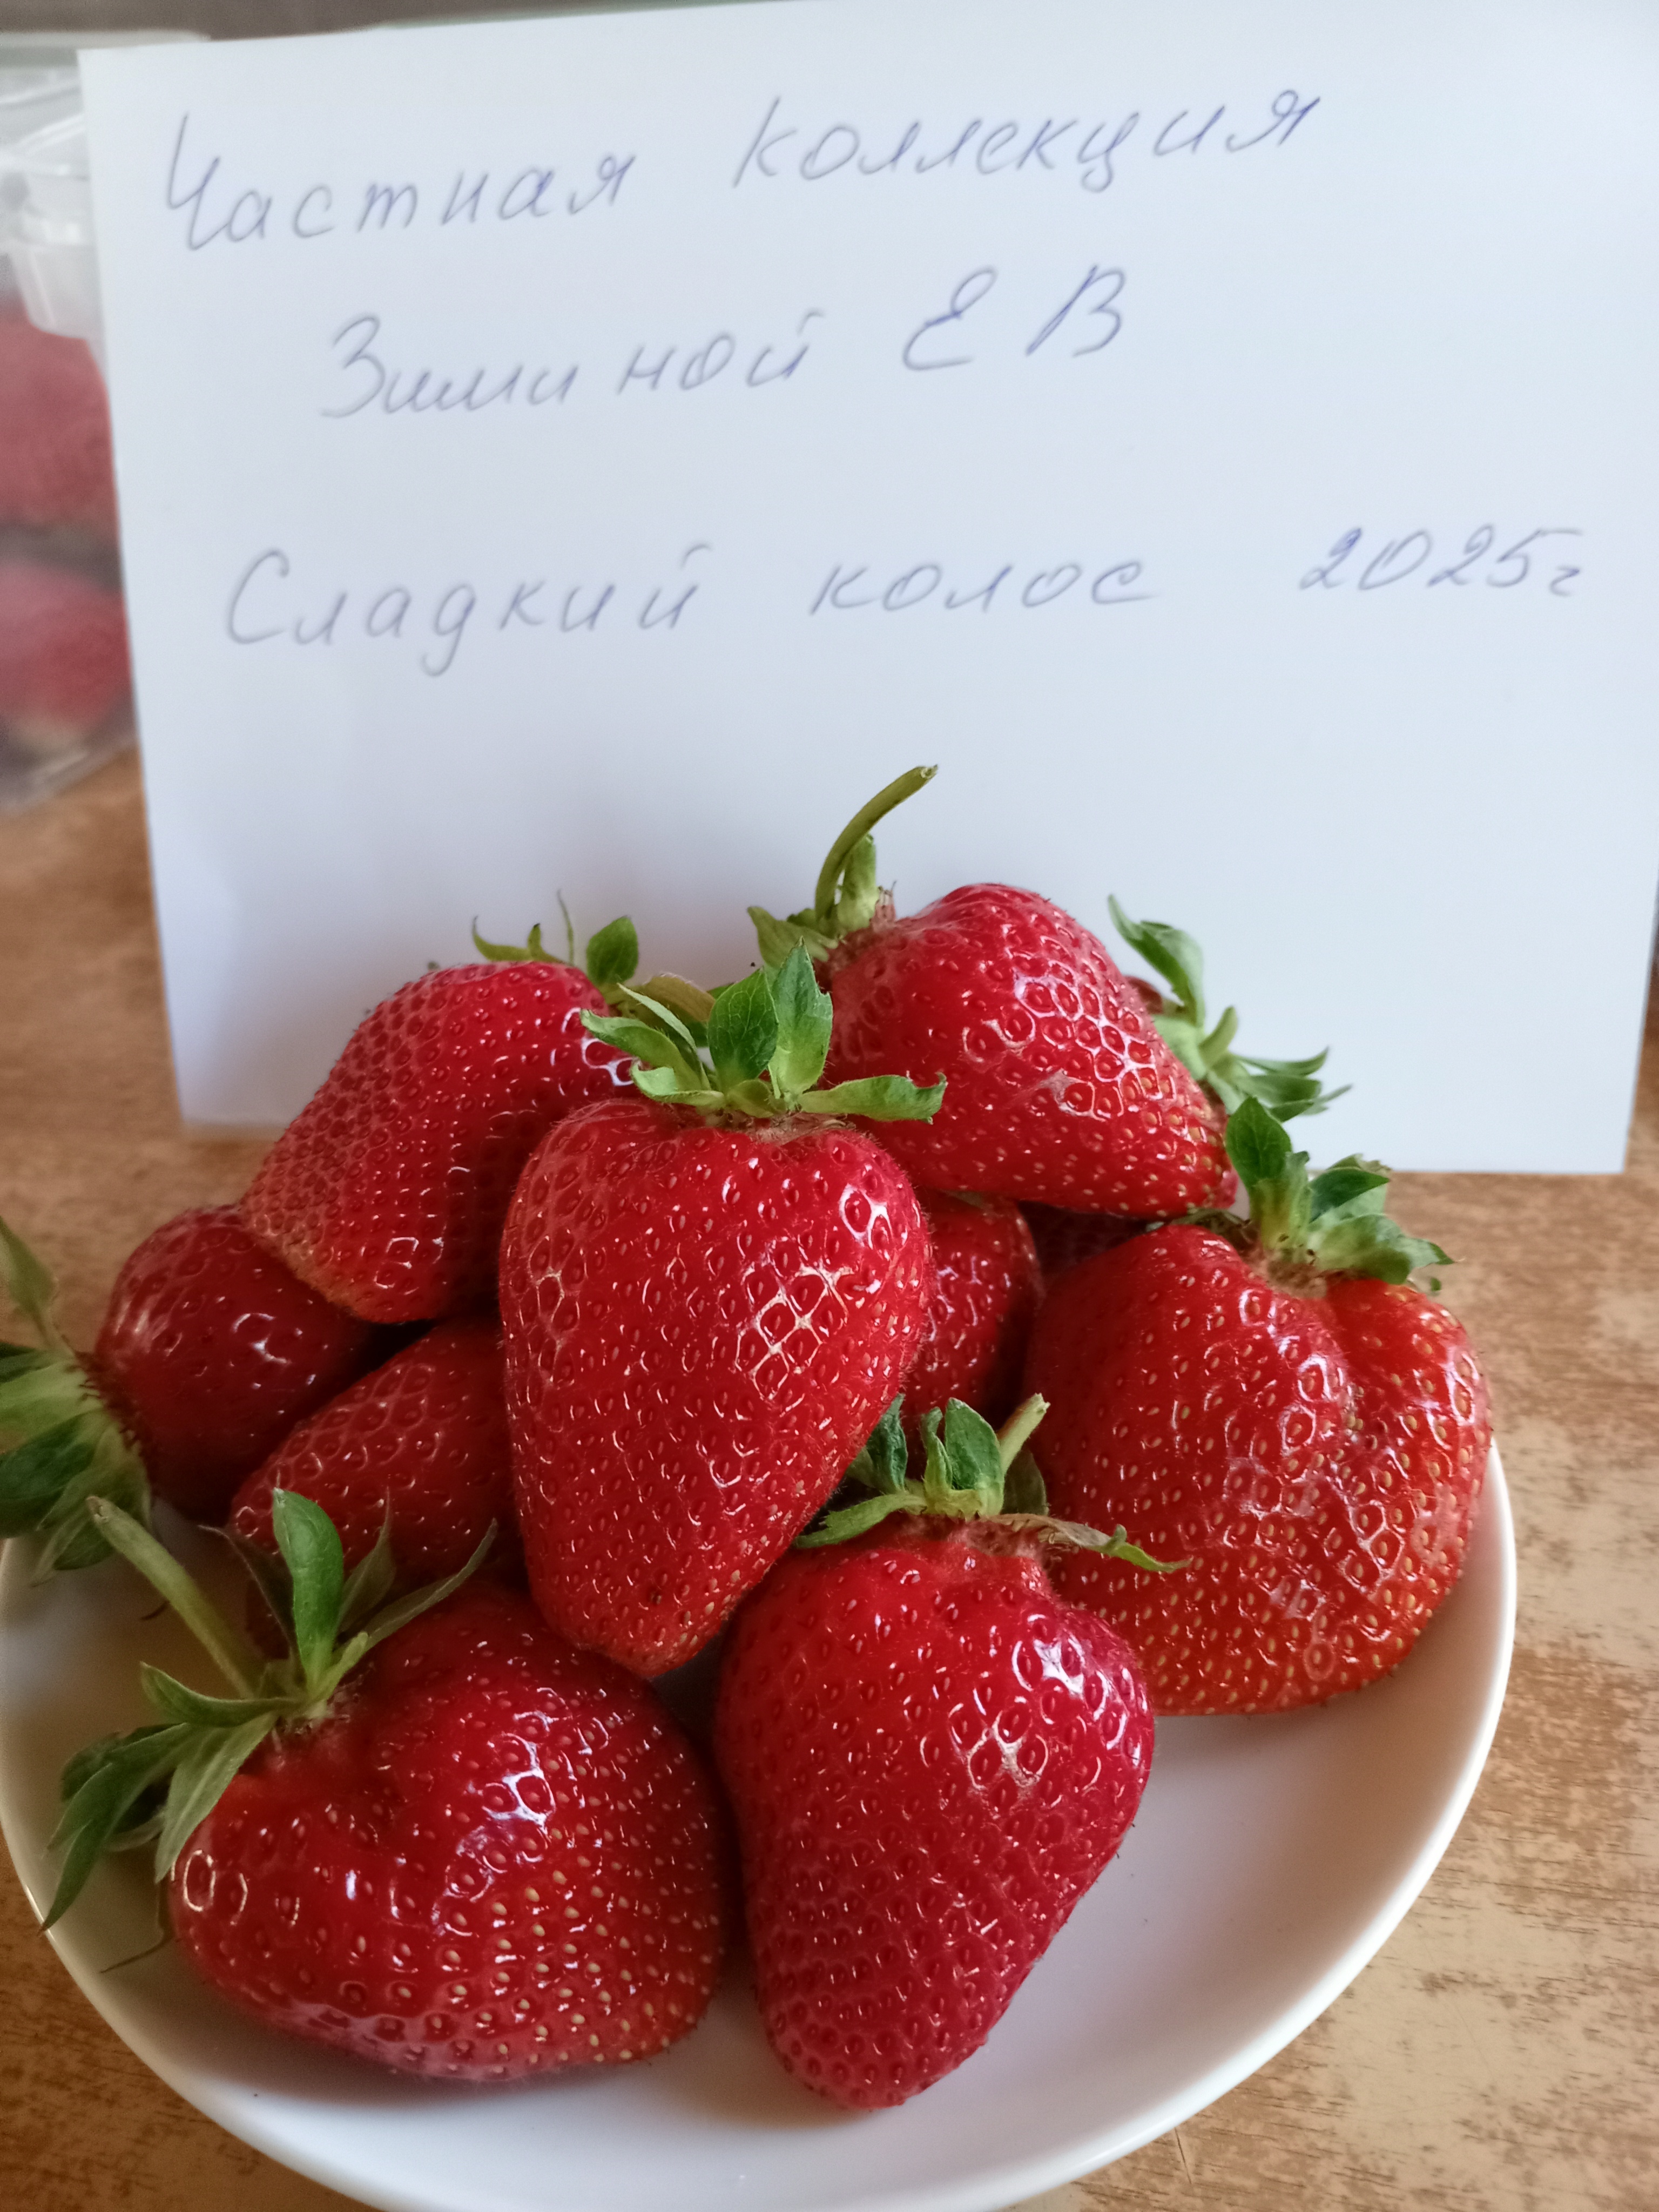 Частная коллекция
Зиминой Е В
Сладкий колос 2025г